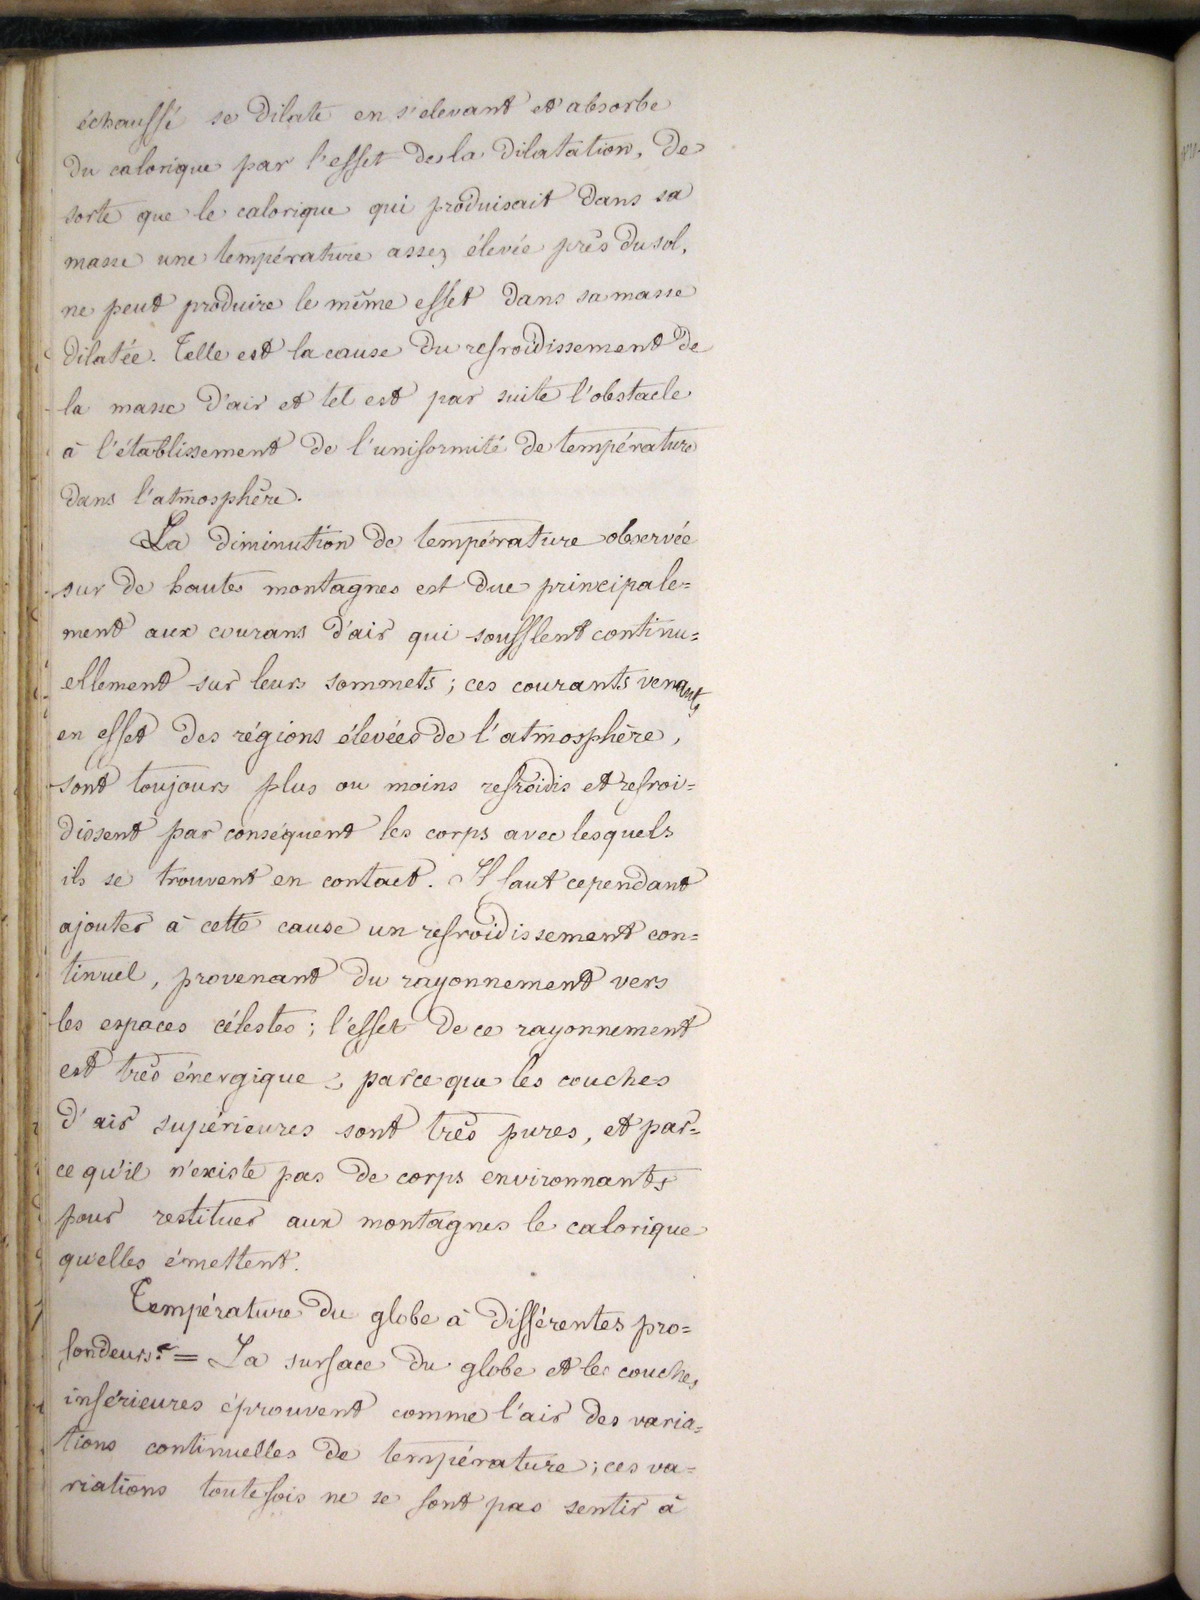 échauffé se dilate en s'elevant et absorbe
du calorique par l'effet de la dilatation, de
sorte que le calorique qui produisait dans sa
masse une température assez élevée près du sol,
ne peut produire le même effet dans sa masse
dilatée. Telle est la cause du refroidissement de
la masse d'air et tel est par suite l'obstacle
à l'établissement de l'uniformité de température
dans l'atmosphère.
La diminution de température observée
sur de hautes montagnes est due principale=
ment aux courans d'air qui soufflent continu=
ellement sur leurs sommets ; ces courants venants
en effet des régions élevées de l'atmosphère,
sont toujours plus ou moins refroidis et refroi=
dissent par conséquent les corps avec lesquels
ils se trouvent en contact. Il faut cependant
ajouter à cette cause un refroidissement con=
tinuel, provenant du rayonnement vers
les espaces célestes ; l'effet de ce rayonnement
est très énergique, parce que les couches
d'air supérieures sont très pures, et par=
ce qu'il n'existe pas de corps environnants
pour restituer aux montagnes le calorique
qu'elles émettent.
Température du globe à différentes pro=
fondeurs. = La surface du globe et les couches
inférieures éprouvent comme l'air des varia=
tions continuelles de température ; ces va=
riations toutefois ne se font pas sentir à